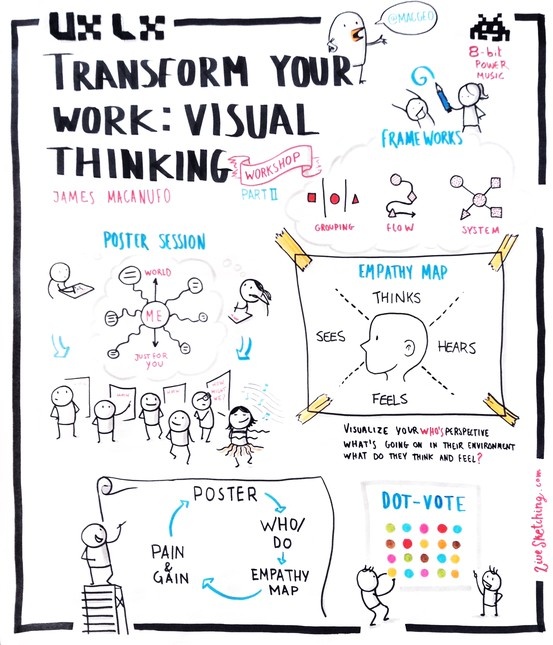 UX LX
@MACGEO
8-bit
POWER
MUSIC
TRANSFORM YOUR
WORK: VISUAL
THINKING
WORKSHOP
PART II
JAMES MACANUFO
FRAMEWORKS
GROUPING
FLOW
SYSTEM
POSTER SESSION
WORLD
ME
JUST FOR
YOU
EMPATHY MAP
THINKS
SEES
HEARS
FEELS
VISUALIZE YOUR WHO'S PERSPECTIVE
WHAT'S GOING ON IN THEIR ENVIRONMENT
WHAT DO THEY THINK AND FEEL?
POSTER
WHO/
DO
EMPATHY
MAP
PAIN
&
GAIN
DOT-VOTE
LiveSketching.com